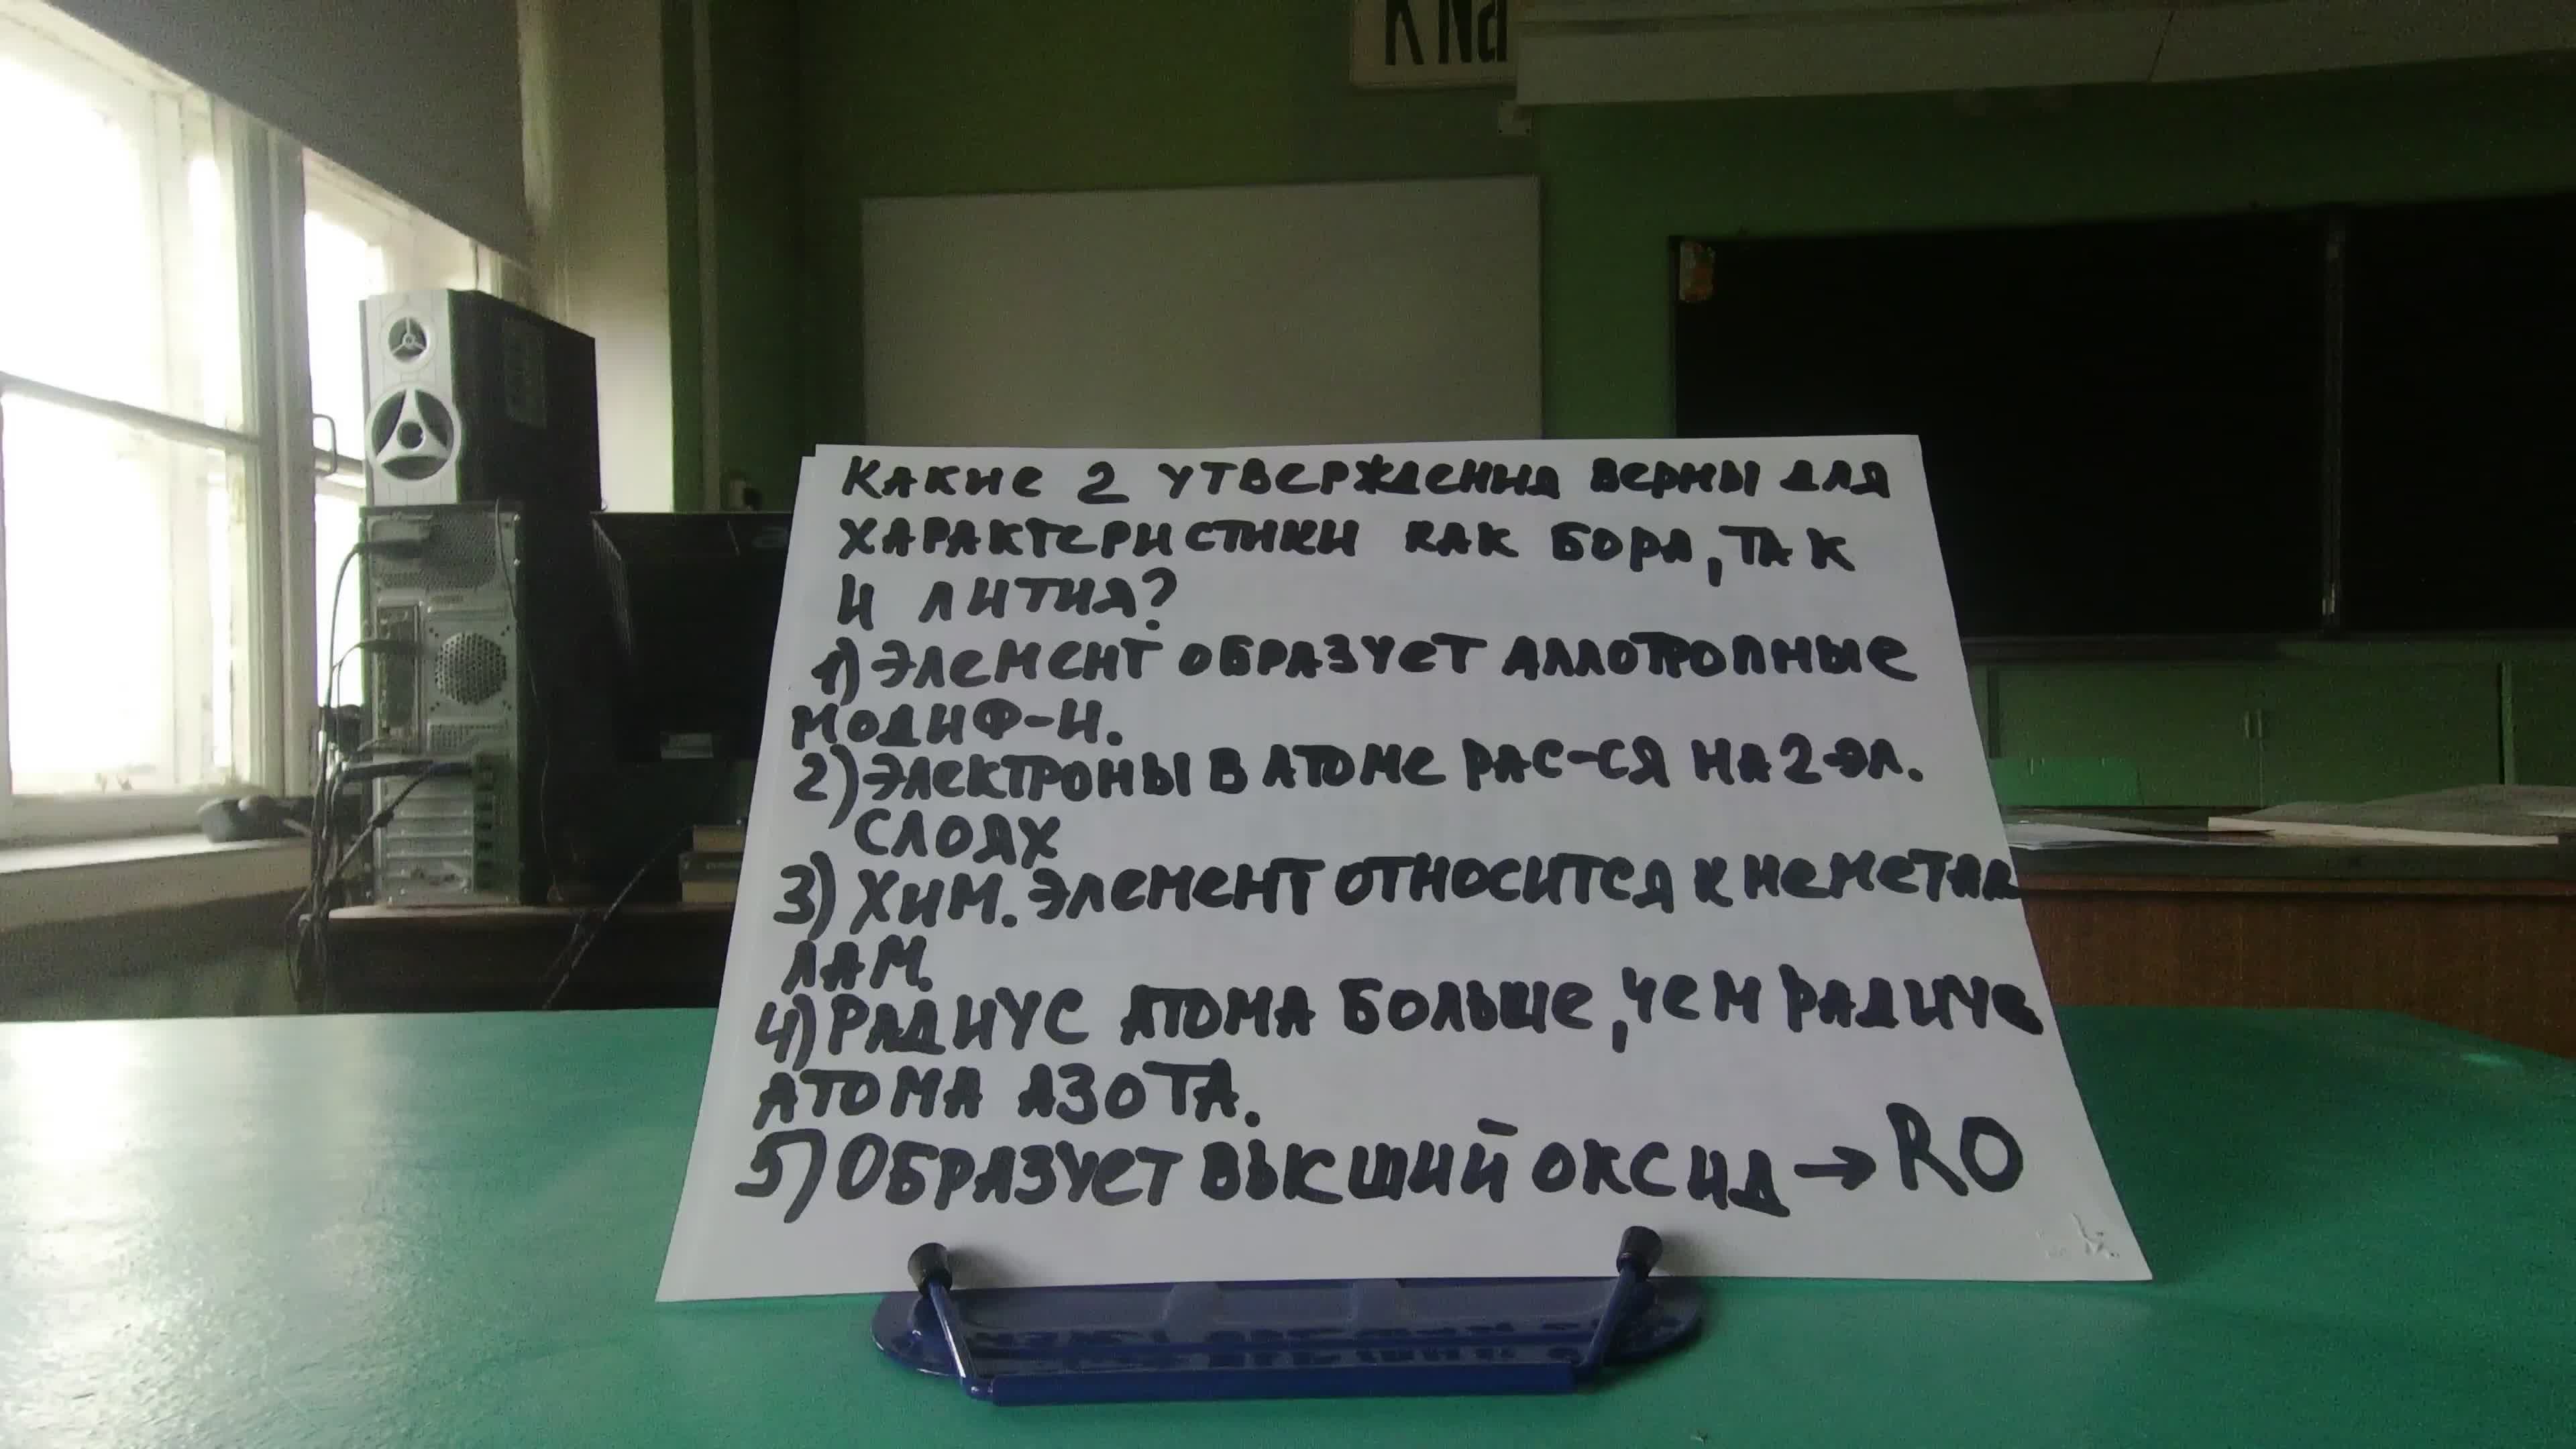 K Na
Какие 2 утверждения верны для
характеристики как бора, так
и лития?
1) Элемент образует аллотропные
модиф-и.
2) Электроны в атоме рас-ся на 2-эл.
слоях
3) Хим. элемент относится к неметал
лам.
4) Радиус атома больше, чем радиус
атома азота.
5) Образует высший оксид → RO